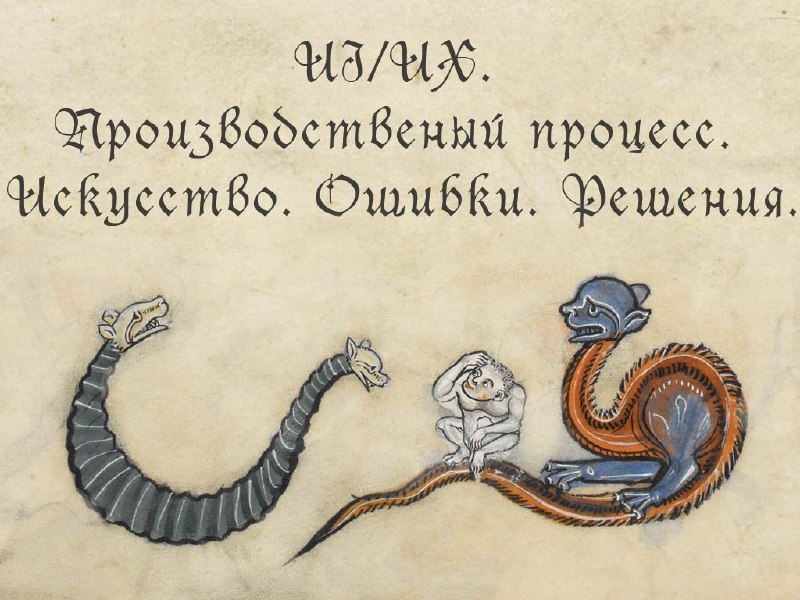 UI/UX.
Производственый процесс.
Искусство. Ошибки. Решения.